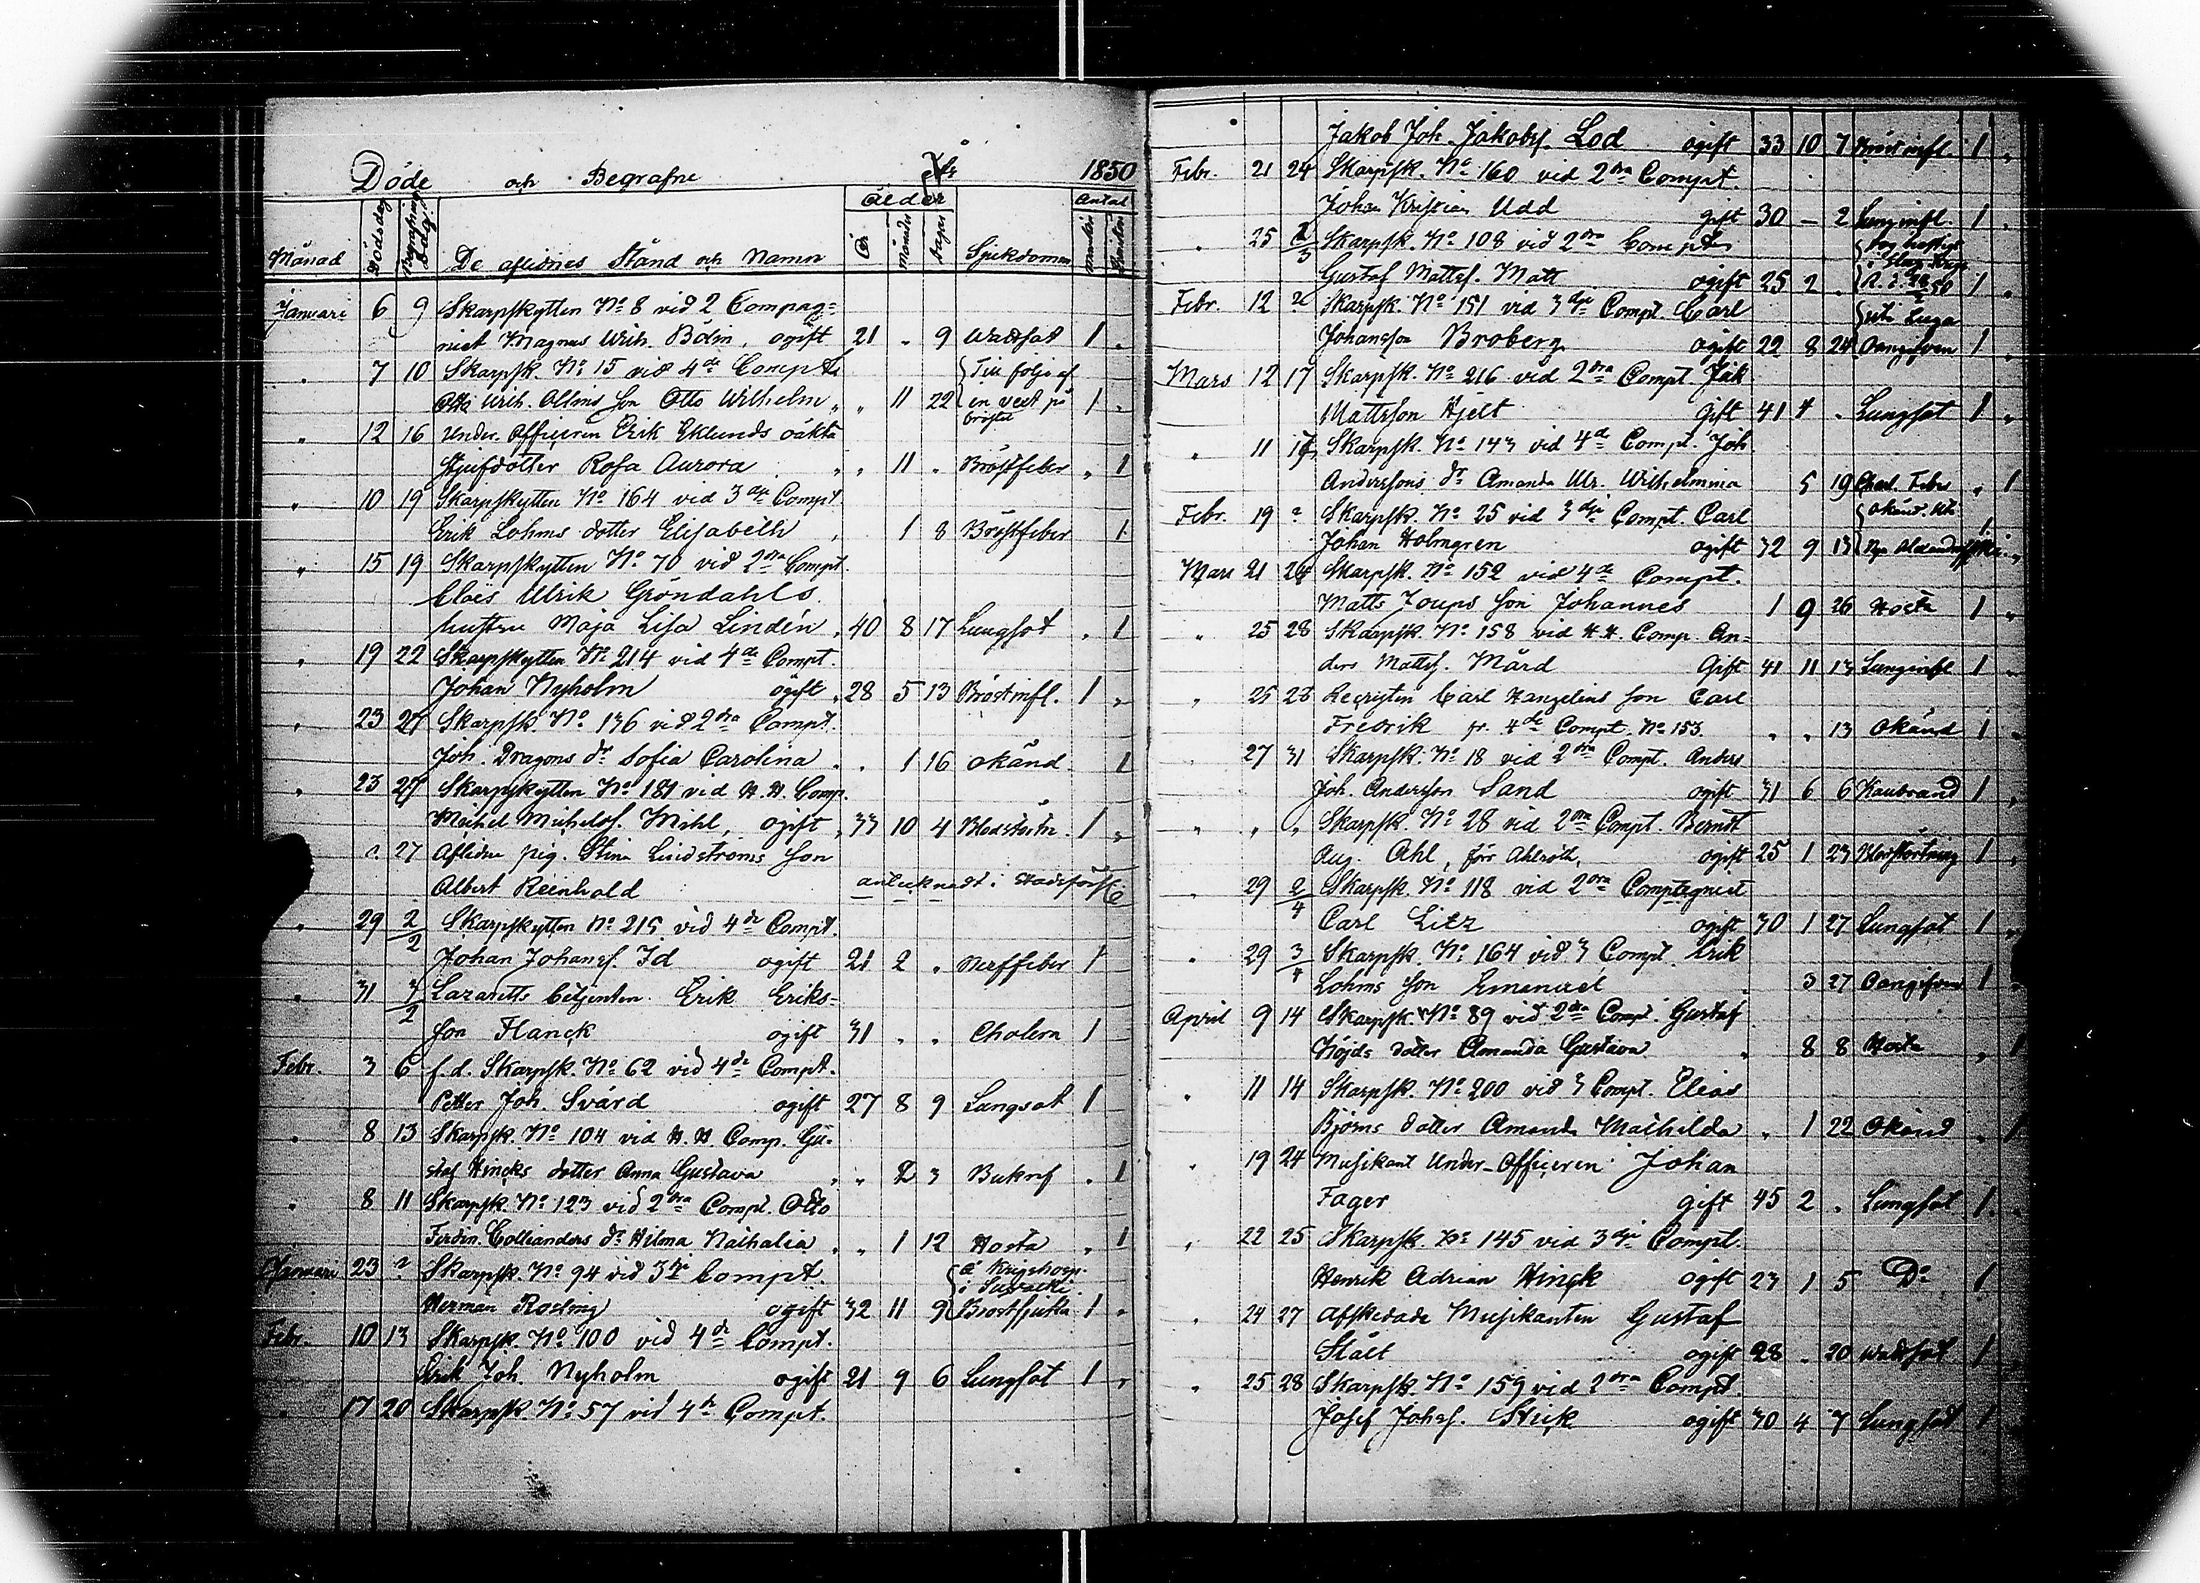 Döde och Begrafne År 1850
Månad Dödsdag Begrafnings dag De aflidnes Stånd och Namn Ålder År Månader Dagar Sjukdomen Antal Mankön Qvinkön
Januari 6 9 Skarpskytten No 8 vid 2 Compag=
niet Magnus Wilh. Bólin, ogift 21 " 9 Wattsot 1 "
" 7 10 Skarpsk. No 15 vid 4de Compts {Till följe af
Otto Wilh. Olins son Otto Wilhelm " " 11 22 en vext på 1 "
bröstet
" 12 16 Under Officeren Erik Eklunds oäkta
Styfdotter Rosa Aurora " " 11 " Bröstfeber " 1
" 10 19 Skarpskytten No 164 vid 3dje Compt.
Erik Lohms dotter Elisabeth " 1 8 Bröstfeber 1
" 15 19 Skarpskytten No 70 vid 2dra Compt.
Claës Ulrik Gröndahls
hustru Maja Lisa Lindén " 40 8 17 Lungsot " 1
" 19 22 Skarpskytten No 214 vid 4de Compt.
Johan Nyholm ogift " 28 5 13 Bröstinfl. 1 "
" 23 27 Skarpsk. No 136 vid 2dra Compt.
Joh. Dragons dr Sofia Carolina " " 1 16 okänd 1
" 23 27 Skarpskytten No 181 vid H.H. Comp.
Michel Michelss. Mihl, ogift " 33 10 4 Blodstörtn. 1 "
? 27 Aflidne pig. Stina Lindströms son
Albert Reinhold antecknadt i Stadsförs
" 29 2/2 Skarpskytten No 215 vid 4de Compt.
Johan Johanss. Id ogift 21 2 " Nerffeber 1
" 31 3/2 Lazaretts betjenten Erik Eriks=
son Flanck ogift 31 " " Cholera 1
Febr. 3 6 f.d. Skarpsk. No 62 vid 4de Compt.
Petter Joh. Svärd ogift 27 8 9 Lungsot 1
" 8 13 Skarpsk. No 104 vid H.H Comp. Gu=
staf Hincks dotter Anna Gustava " " 2 3 Bukref " 1
" 8 11 Skarpsk. No 123 vid 2dra Compt. Otto
Ferdin. Collianders dr Hilma Nathalia " " 1 12 Hosta " 1
Januari 23 ? Skarpsk. No 94 vid 3dje Compt. {å Krigshosp.
i Suwalki
Herman Rosling ogift 32 11 9 Bröstsjuka 1 "
Febr. 10 13 Skarpsk. No 100 vid 4de Compt.
Erik Joh. Nyholm ogift 21 9 6 Lungsot 1 "
" 17 20 Skarpsk. No 57 vid 4de Compt.
Jakob Joh. Jakobss. Lod ogift 33 10 7 Bröstinfl. 1 "
Febr. 21 24 Skarpsk. No 160 vid 2dra Compt.
Johan Kristian Udd gift 30 – 2 Lunginfl. 1 "
" 25 2/3 Skarpsk. No 108 vid 2dra Compts
Gustaf Mattss. Matt ogift 25 2 " 1 "
Febr. 12 ? Skarpsk. No 151 vid 3dje Compt. Carl uti Luga
Johansson Broberg ogift 22 8 24 Oangifven 1 "
Mars 12 17 Skarpsk. No 216 vid 2dra Compt. Jak
Mattsson Hjelt Gift 41 4 " Lungsot 1 "
" 11 17 Skarpsk. No 143 vid 4de Compt. Joh
Anderssons dr Amanda Ulr. Wilhelmina 5 19 Feber " 1
Febr. 19 ? Skarpsk. No 25 vid 3dje Compt. Carl {okänd. uti
Johan Holmgren ogift 32 9 13 Nya 1 "
Mars 21 24 Skarpsk. No 152 vid 4de Compt.
Matts Joups son Johannes 1 9 26 Hosta 1 "
" 25 28 Skarpsk. No 158 vid H.H. Comp. An=
ders Mattss. Mård Gift 41 11 13 Lunginfl 1 "
" 25 28 Recryten Carl Hangelins son Carl
Fredrik fr. 4de Compt. No 153 " " 13 Okänd 1 "
" 27 31 Skarpsk. No 18 vid 2dra Compt. Anders
Joh. Andersson Sand ogift 31 6 6 Kallbrand 1 "
" " " Skarpsk. No 28 vid 2dra Compt. Berndt
Aug. Ahl, förr Ahlroth, ogift 25 1 23 Blodstörtning 1 "
" 29 2/4 Skarpsk. No 118 vid 2dra Compagniet
Carl Litz ogift 30 1 27 Lungsot 1 "
" 29 3/4 Skarpsk. No 164 vid 3 Compt. Erik
Lohms son Emanuel " 3 27 Oangifven 1 "
April 9 14 Skarpsk. No 89 vid 2dra Compt. Gustaf
Höjds dotter Amanda Gustava " 8 8 Hosta " 1
" 11 14 Skarpsk. No 200 vid 3 Compt. Elias
Björns dotter Amanda Mathilda " 1 22 Okänd " 1
" 19 24 Musikant Under-Officeren Johan
Fager gift 45 2 " Lungsot 1 "
" 22 25 Skarpsk. No 145 vid 3dje Compt.
Henrik Adrian Hinck ogift 23 1 5 Do 1
" 24 27 Afskedade Musikanten Gustaf
Ståll ogift 28 " 20 Wattsot 1
" 25 28 Skarpsk. No 159 vid 2dra Compt.
Josef Johss. Stick ogift 30 4 7 Lungsot 1